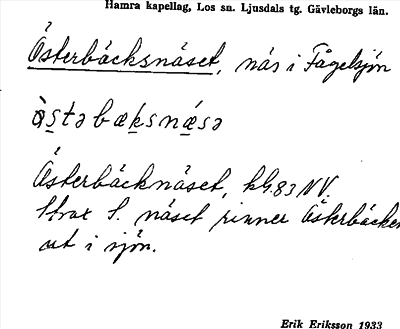 Hamra kapellag, Los sn. Ljusdals tg. Gävleborgs län.
Österbäcksnäset, näs i Fågelsjön
òstəbæksnǽsə
Österbäcknäset, kG.83 NV.
Strax S. näset rinner Österbäcken
ut i sjön.
Erik Eriksson 1933